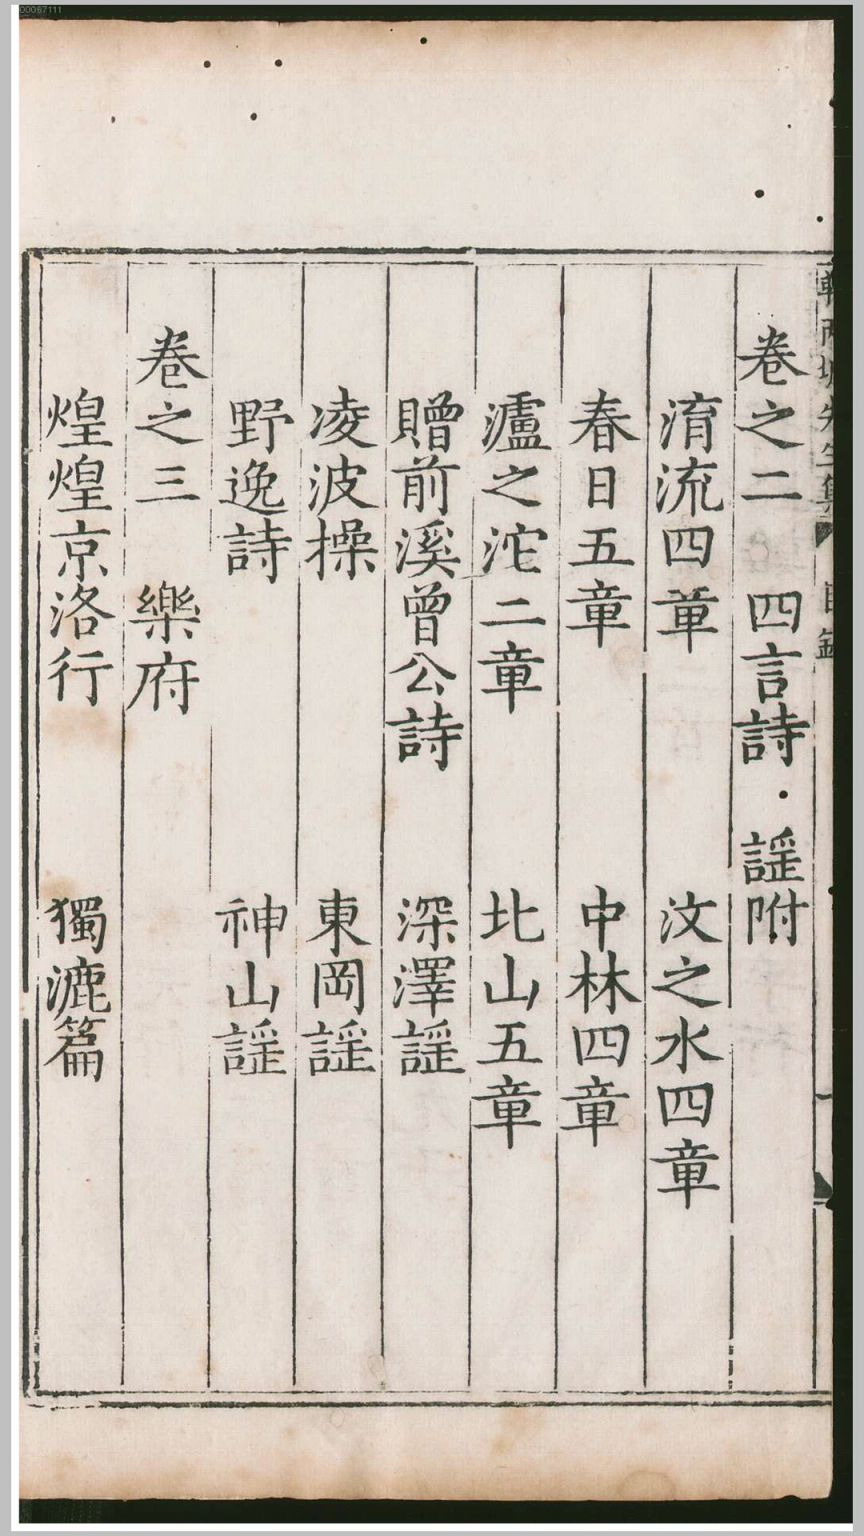 卷之二　四言詩　謡附
淯流四章　汶之水四章
春日五章　中林四章
瀘之沱二章　北山五章
贈前溪曾公詩　深澤謡
凌波操　東岡謡
野逸詩　神山謡
卷之三　樂府
煌煌京洛行　獨漉篇
00067111